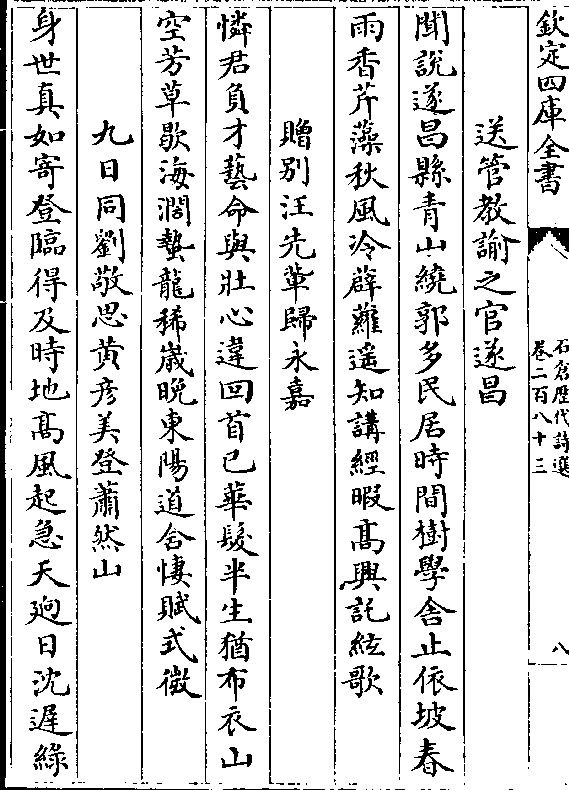 欽定四庫全書
石倉歷代詩選
卷二百八十三
八
送管教諭之官遂昌
聞說遂昌縣青山繞郭多民居時間樹學舍止依坡春
雨香芹藻秋風冷薜蘿遥知講經暇髙興託絃歌
贈別汪先軰歸永嘉
憐君負才藝命與壯心違回首已華髮半生猶布衣山
空芳草歇海濶蟄龍稀嵗晚東陽道舍悽賦式微
九日同劉敬思黄彦美登蕭然山
身世真如寄登臨得及時地髙風起急天逈日沈遲綠